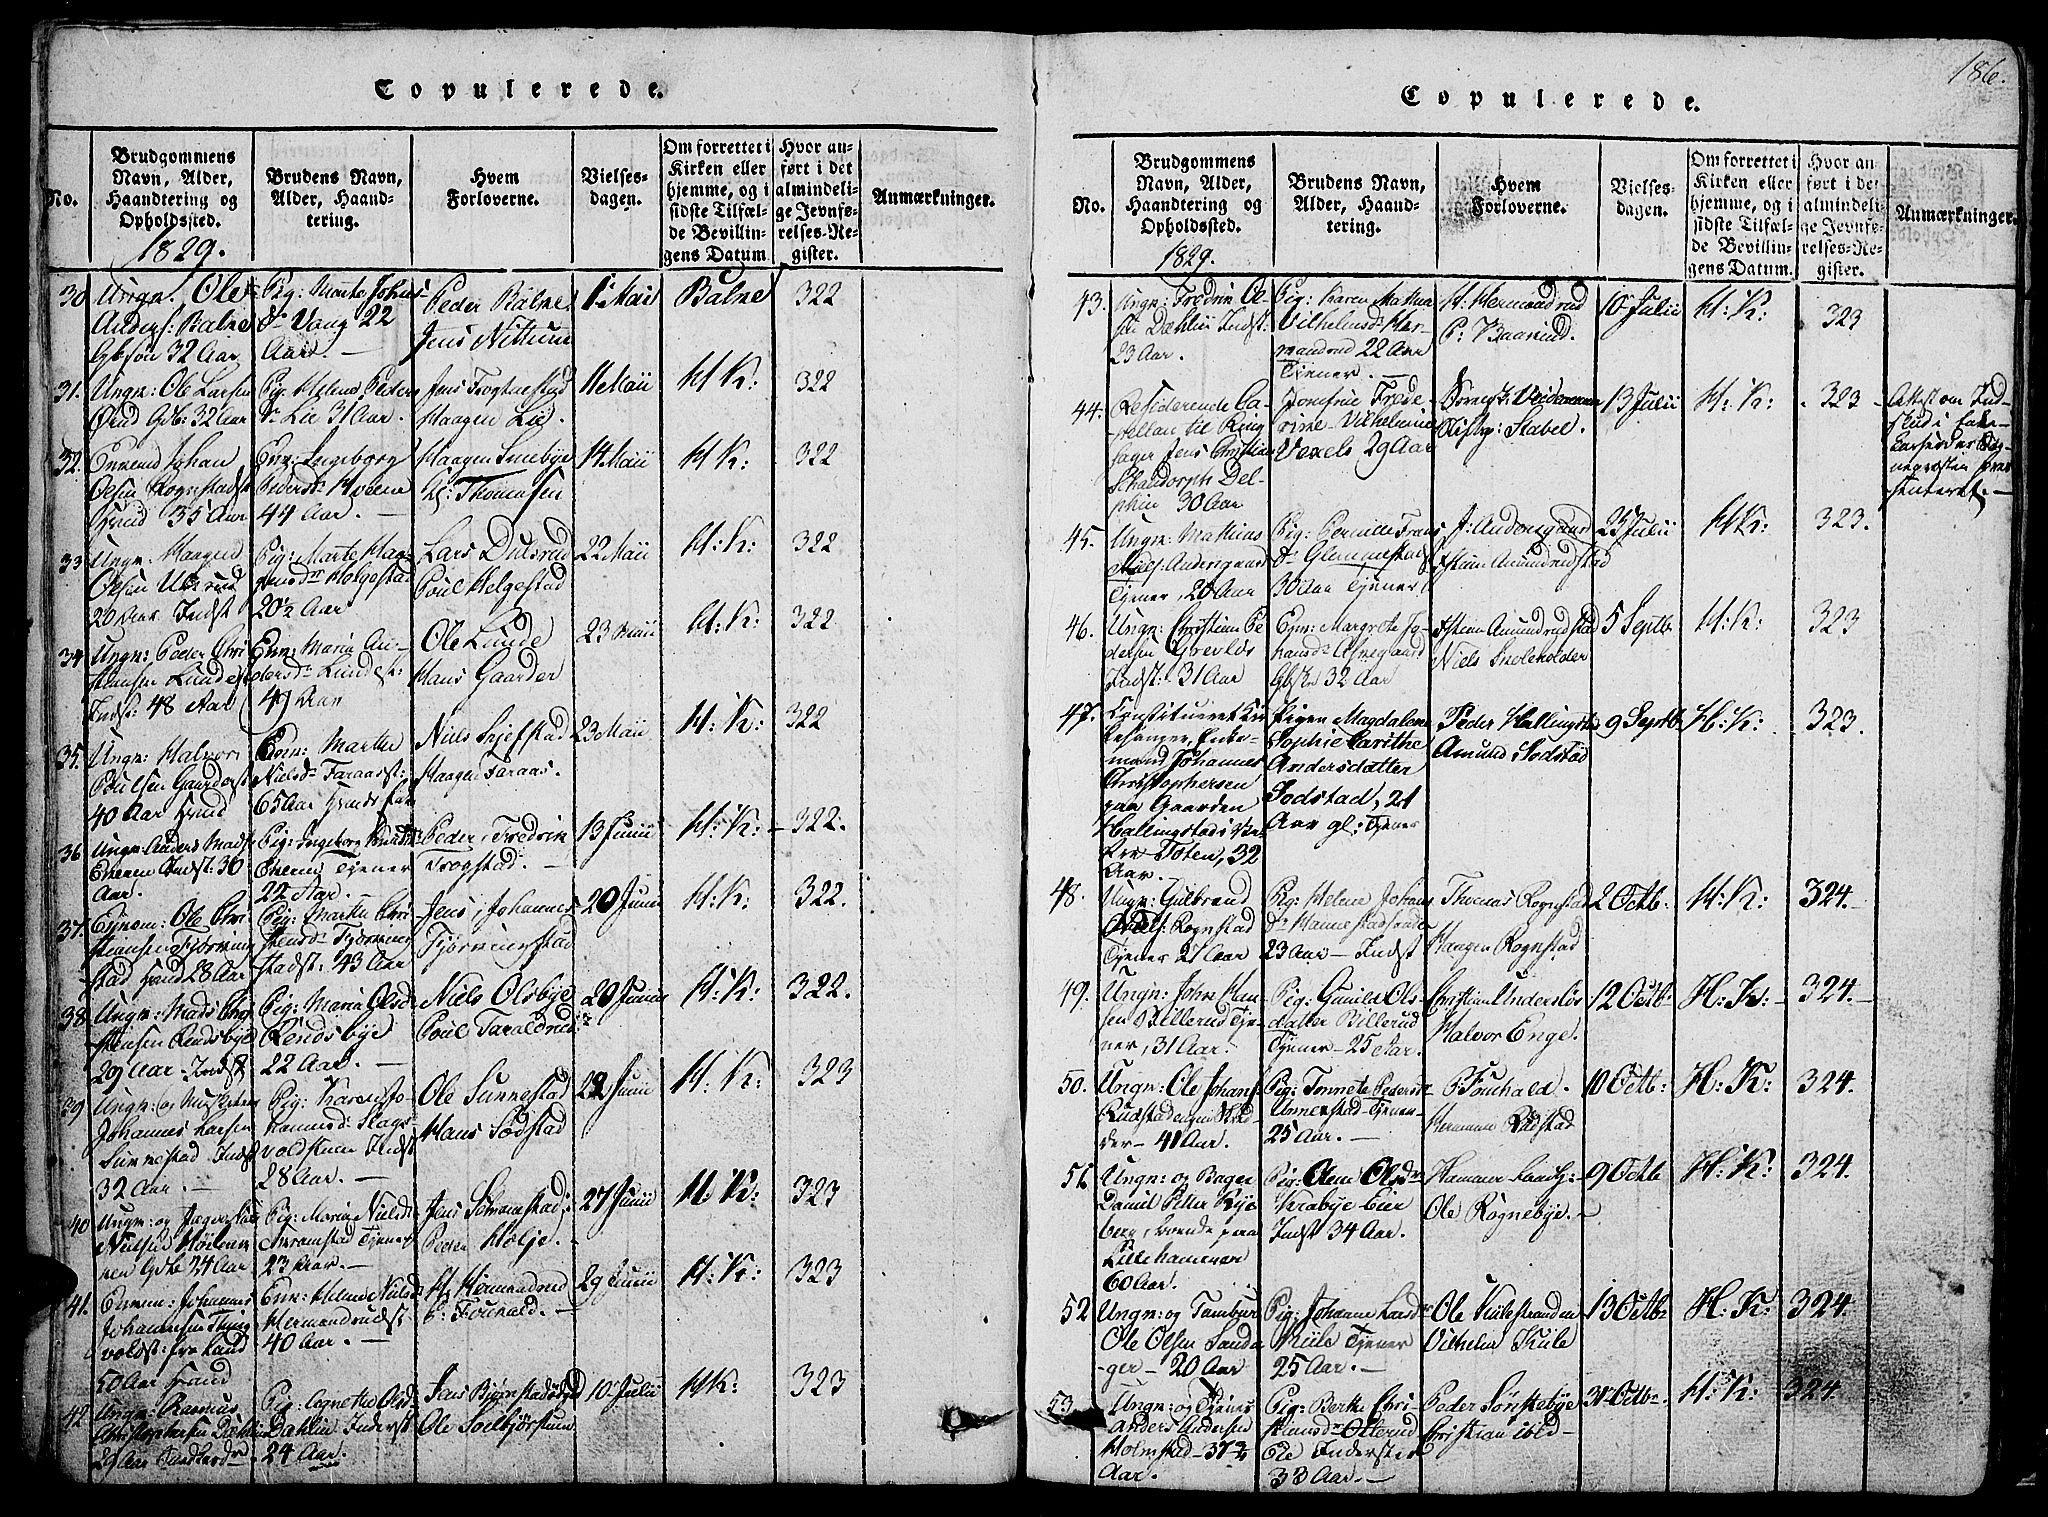 186.
Copulerede.
No.
Brudgommens
Navn, Alder,
Haandtering og
Opholdssted.
1829.
Brudens Navn,
Alder, Haand-
tering.
Hvem
Forloverne.
Vielses-
dagen.
Om forrettet i
Kirken eller
hjemme, og i
sidste Tilfæl-
de Bevillin-
gens Datum.
Hvor an-
ført i det
almindeli-
ge Jevnfø-
relses-Re-
gister.
Anmærkninger.
30.
Ungn. Ole
Anders: Balne
32 Aar
Pig: Marte Johns
Dr Vang 22
Aar. —
Peder Balne
Jens Nittum
1 Maii
Balne
322
31.
Ungn: Ole Larsen
32 Aar
Pig: Helene Peders
Dr Lie 31 Aar.
Jens Trogstad
Haagen Lie.
Maii
H K:
322
32.
Enkemd Johan
Olsen Rognstadst
35 Aar
Enk: Ingeborg
Pedersdr Hveem
44 Aar. —
Haagen Smebye
Thomesen
14 Maii
H K:
322
33
Ungn: Haagen
Olsen
20 Aar Indst
Pig: Marte Haa-
gensdr Helgestad
20½ Aar
Lars Dulsrud
Poul Helgestad
22 Maii
H: K:
322
34
Ungn: Peder Chri
stiansen Lundest
Indst: 48 Aar
Enk: Maria An-
dersdr Lundest:
49 Aar
Ole Lunde
Hans Gaarder
23 Maii
H: K:
322
35.
Ungn: Halvor
Poulsen Gaarderst
40 Aar
Enk: Marthe
Nielsdr Faraasst:
65 Aar
Niels Skjefstad
Haagen Faraas.
23 Maii
H: K:
322
36
Ungn: Anders Mads
Eneren Indst: 30
Aar.
Pig: Ingeborg Knuds
Tjener
22 Aar. —
Peder, Fredrik
Trogstad. —
13 Junii
H: K:
322.
37.
Ole Chri
stiansen Fjorving
stad 28 Aar
Pig: Marthe Chri
stensdr Fjorving
stadst: 43 Aar
Jens, Johannes
Fjorvingstad
20 Junii
H: K:
322.
38
Ungn: Mads Chri
stensen Rendsbye
29 Aar. Indst
Pig: Maria Olsd
Rendsbye
22 Aar. —
Niels Olsbye
Poul Taraldrud
20 Junii
H: K:
322.
39
Ungn: og Musketeer
Johannes Larsen
Sunnestad Indst
32 Aar. —
Pig: Karen Jo-
hannisd: Slags
voldstuen Indst
28 Aar. —
Ole Sunnestad
Hans Sodstad
22 Junii
H: K:
323
40
Ungn: og Jæger
Nielsen
24 Aar
Pig: Maria Nielsdr
Schramstad Tjener
23 Aar. —
Jens Schramstad:
Peder Hielje.
27 Junii
H: K:
323
41.
Enkem: Johannes
Johannesen Thing
voldst: fra Land
50 Aar
Enk: Helene Nielsd
Hermandrudst
40 Aar. —
H. Hermandrud
P: Fouhald. —
29 Junii
H: K:
323
42
Ungn: Rasmus
Christophersen Dæhlin
29 Aar
Pig: Agnethe Olsd
Dæhlin Inderst
24 Aar:
Jens Bjørnstadødegd
Ole
10 Julii
H K:
323
Copulerede.
No.
Brudgommens
Navn, Alder,
Haandtering og
Opholdssted.
1829.
Brudens Navn,
Alder, Haand-
tering.
Hvem
Forloverne.
Vielses-
dagen.
Om forrettet i
Kirken eller
hjemme, og i
sidste Tilfæl-
de Bevillin-
gens Datum.
Hvor an
ført i det
almindeli
ge Jevnfø-
relses-Re-
gister.
Anmærkninger.
43.
Ungn: Fredrik Ol-
sen Dæhlii Indst.
23 Aar.
Pig: Karen Mathea
Vilhelmsdr Her-
mandrud 22 Aar
Tjener —
H. Hermandrud
P: Baarud.
10 Julii
H: K:
323
44.
Residerende Ca-
pellan til Ring
sager Jens Christian
Schandorph Del-
phin 30 Aar
Jomfrue Frede-
rine Vilhelmine
Vexels 29 Aar
Veidemann
Stabel.
13 Julii
H: K:
323
Attest om Ind-
skud i Enke-
kassen
præ
senteret. —
45.
Ungn: Mathias
Niels: Andersgaard
Tjener, 20 Aar
Pig: Pernille Frans
Dr Glemmestad
30 Aar Tjener
J: Andersgaard
Amundrudstad
25 Julii
H K:
323.
46.
Ungn: Christian Pe
dersen Grevløs
Indst: 31 Aar
Margrete Jo
hansdr Alnegaard
32 Aar
Amundrudstad
Niels Snekeholder
5 Septb:
H: K:
323
47.
Constitueret Kir
kesanger, Enke-
mand Johannes
Christophersen
paa Gaarden
Hallingstad i Ve-
stre Toten, 32
Aar. —
Pigen Magdalene
Sophie Carithe
Andersdatter
Sodstad, 21
Aar gl: Tjener
Peder Hallingstad
Amund Sodstad
9 Septb:
H: K:
323.
48.
Ungn: Gulbrand
Niels: Rognstad
Tjener 27 Aar
Pig: Helene Johans
Dr Hammerstad
23 Aar — Indst
Thomas Rognstad
Haagen Rognstad
2 Octb:
H: K:
324.
49.
Ungn: John Han
sen Billerud Tje-
ner, 31 Aar.
Pig: Gunild Ols-
datter Billerud
Tjener — 25 Aar.
Christian Undersløs
Halvor Enge.
12 Octb:
H: K: —
324.
50.
Ungn: Ole Johans
Rudstad
41 Aar.
Pig: Tonnete Pedersdr
Unnerstad Tjener
25 Aar. —
P. Fouhald.
Herman Rudstad
10 Octb:
H: K:
324.
51.
Ungn: og Bager
Daniel Peter Nye
berg, boende paa
Lillehammer
60 Aar.
Pig: Olene Olsdr
Krabye Eier
Indst 34 Aar.
Hammer
Ole Rognebye. —
9 Octb
H: K:
324.
52
Ungn: og Tambur
Ole Olsen Sanda-
ger — 20 Aar
Pig: Johanne Larsdr
Kiile Tjener
25 Aar. —
Ole Kiilestranden
Vilhelm Kiile
13 Octb:
H: K:
324.
53
Ungn: og Tjener
Anders Andersen
Holmstad — 37
Aar.
Pig: Berthe Chri
stiansdr Otterud
Inderster
33 Aar. —
Peder Sørstebye
Christian
31 Octb:
H: K:
324.